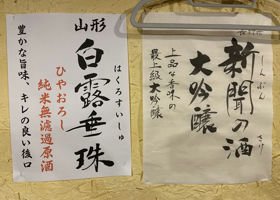 山形
白露垂珠
はくろすいしゅ
ひやおろし
純米無濾過原酒
豊かな旨味 キレの良い後口
新聞の酒
しんぶん
大吟醸
上品な香味の
最上級大吟醸